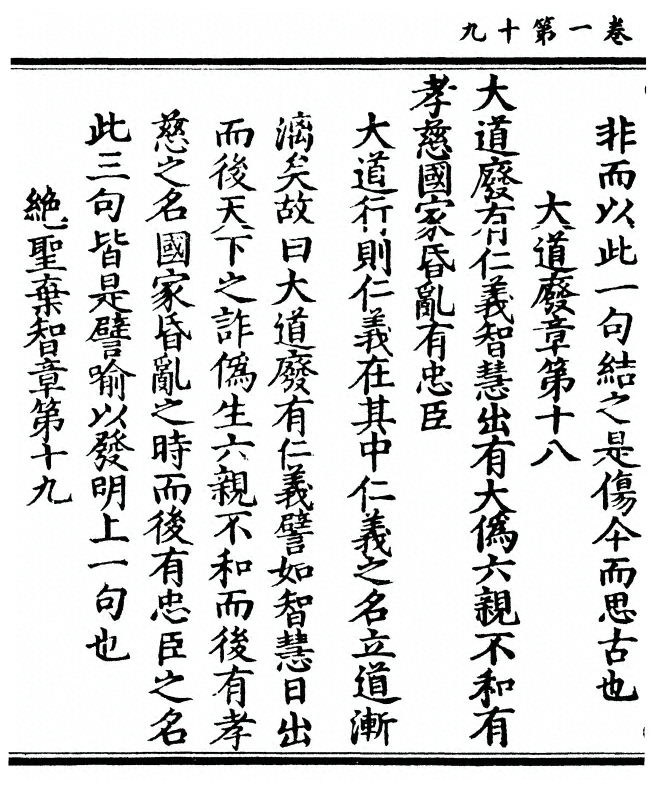 卷一第十九
非而以此一句結之是傷今而思古也
大道廢章第十八
大道廢有仁義智慧出有大僞六親不和有
孝慈國家昏亂有忠臣
大道行則仁義在其中仁義之名立道漸
漓矣故曰大道廢有仁義譬如智慧日出
而後天下之詐僞生六親不和而後有孝
慈之名國家昏亂之時而後有忠臣之名
此三句皆是譬喻以發明上一句也
絶聖棄智章第十九